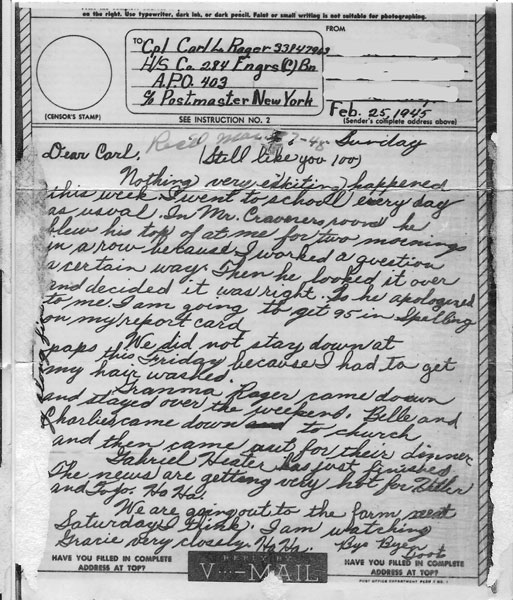 on the right. Use typewriter, dark ink, or dark pencil. Faint or small writing is not suitable for photographing.
TO
Cpl Carl L. Rager 33847963
H/S Co. 284 Engrs (C) Bn
A.P.O. 403
c/o Postmaster New York
FROM
Feb. 25, 1945
(CENSOR'S STAMP)
SEE INSTRUCTION NO. 2
(Sender's complete address above)
Sunday
Dear Carl, (Still like you too)
Nothing very eskiting happened
this week. I went to school every day
as usual. In Mr. Cravener's room he
blew his top of at me for two mornings
in a row because I worked a question
a certain way. Then he looked it over
and decided it was right. So he apologized
to me. I am going to get 95 in Spelling
on my report card.
We did not stay down at
paps this Friday because I had to get
my hair washed.
Granma Rager came down
and stayed over the weekend. Bille and
Charlies came down to church
and then came out for their dinner.
Gabriel Heater has just finished.
The news are getting very hot for Hitler
and Tojo. Ho Ha!
We are going out to the farm next
Saturday I think. I am watching
Gracie very closely. Ha Ha.
Bye Bye
Doots
HAVE YOU FILLED IN COMPLETE
ADDRESS AT TOP?
V-MAIL
HAVE YOU FILLED IN COMPLETE
ADDRESS AT TOP?